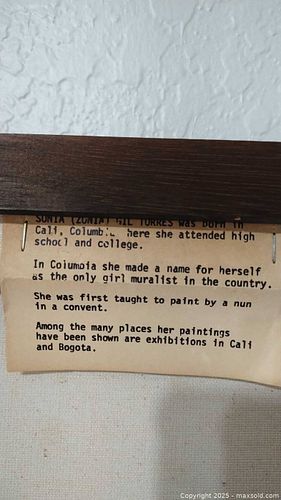 SONIA (ZONIA) GIL TORRES was born in
Cali, here she attended high
school and college.
In Columbia she made a name for herself
as the only girl muralist in the country.
She was first taught to paint by a nun
in a convent.
Among the many places her paintings
have been shown are exhibitions in Cali
and Bogota.
Copyright © 2025 - maxsold.com